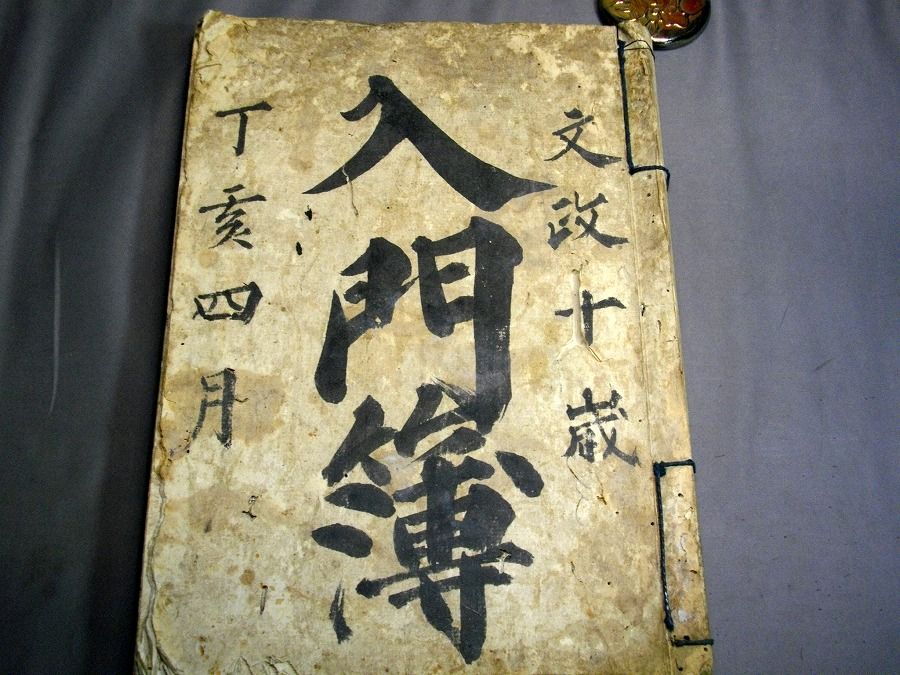 文政十歳
入門簿
丁亥四月